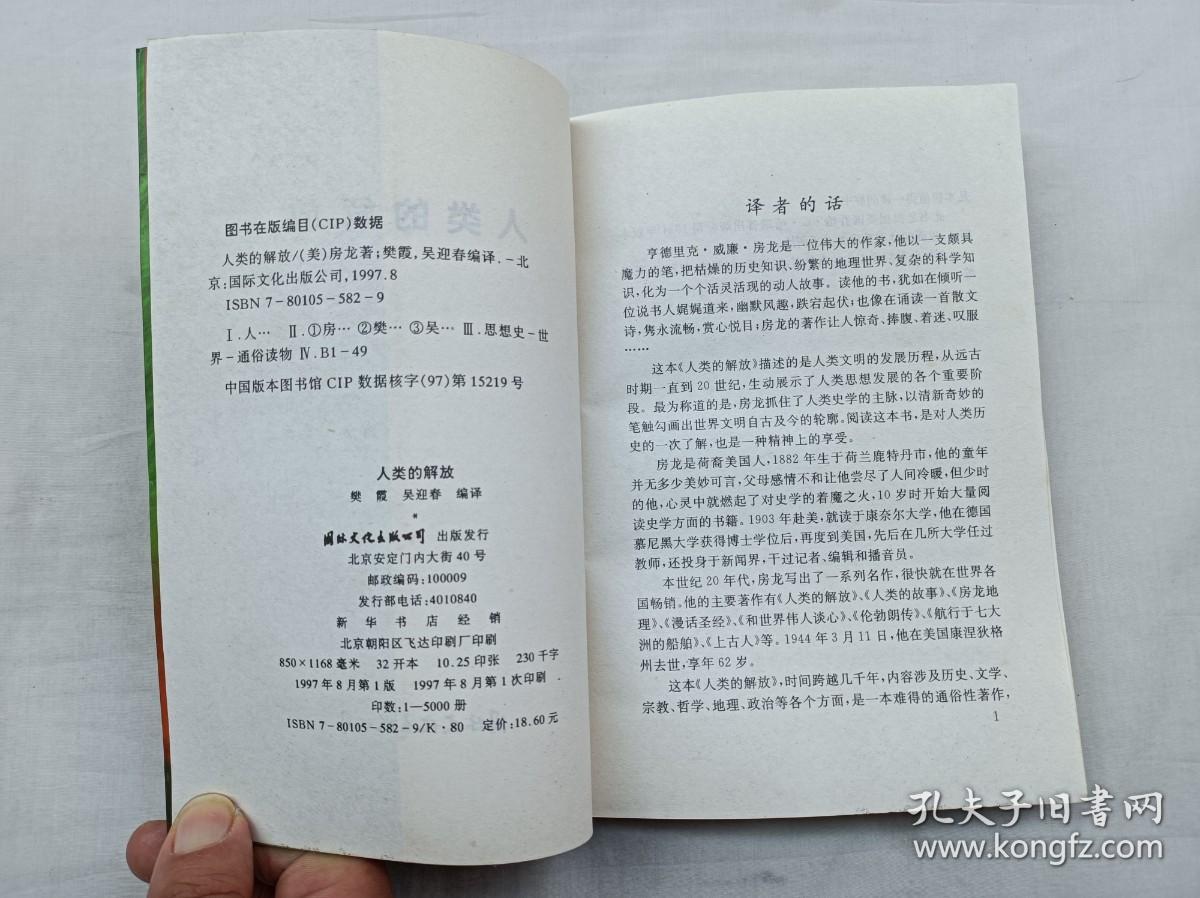 图书在版编目(CIP)数据
人类的解放/(美)房龙著;樊霞,吴迎春编译.-北
京:国际文化出版公司,1997.8
ISBN 7-80105-582-9
Ⅰ.人… Ⅱ.①房… ②樊… ③吴… Ⅲ.思想史-世
界-通俗读物 Ⅳ.B1-49
中国版本图书馆CIP数据核字(97)第15219号
人类的解放
樊 霞 吴迎春 编译
*
国际文化出版公司 出版发行
北京安定门内大街40号
邮政编码:100009
发行部电话:4010840
新华书店经销
北京朝阳区飞达印刷厂印刷
850×1168毫米 32开本 10.25印张 230千字
1997年8月第1版 1997年8月第1次印刷
印数:1—5000册
ISBN 7-80105-582-9/K·80 定价:18.60元
译者的话
亨德里克·威廉·房龙是一位伟大的作家,他以一支颇具
魔力的笔,把枯燥的历史知识、纷繁的地理世界、复杂的科学知
识,化为一个个活灵活现的动人故事。读他的书,犹如在倾听一
位说书人娓娓道来,幽默风趣,跌宕起伏;也像在诵读一首散文
诗,隽永流畅,赏心悦目;房龙的著作让人惊奇、捧腹、着迷、叹服
……
这本《人类的解放》描述的是人类文明的发展历程,从远古
时期一直到20世纪,生动展示了人类思想发展的各个重要阶
段。最为称道的是,房龙抓住了人类史学的主脉,以清新奇妙的
笔触勾画出世界文明自古及今的轮廓。阅读这本书,是对人类历
史的一次了解,也是一种精神上的享受。
房龙是荷裔美国人,1882年生于荷兰鹿特丹市,他的童年
并无多少美妙可言,父母感情不和让他尝尽了人间冷暖,但少时
的他,心灵中就燃起了对史学的着魔之火,10岁时开始大量阅
读史学方面的书籍。1903年赴美,就读于康奈尔大学,他在德国
慕尼黑大学获得博士学位后,再度到美国,先后在几所大学任过
教师,还投身于新闻界,干过记者、编辑和播音员。
本世纪20年代,房龙写出了一系列名作,很快就在世界各
国畅销。他的主要著作有《人类的解放》、《人类的故事》、《房龙地
理》、《漫话圣经》、《和世界伟人谈心》、《伦勃朗传》、《航行于七大
洲的船舶》、《上古人》等。1944年3月11日,他在美国康涅狄格
州去世,享年62岁。
这本《人类的解放》,时间跨越几千年,内容涉及历史、文学、
宗教、哲学、地理、政治等各个方面,是一本难得的通俗性著作,
1
孔夫子旧书网
www.kongfz.com